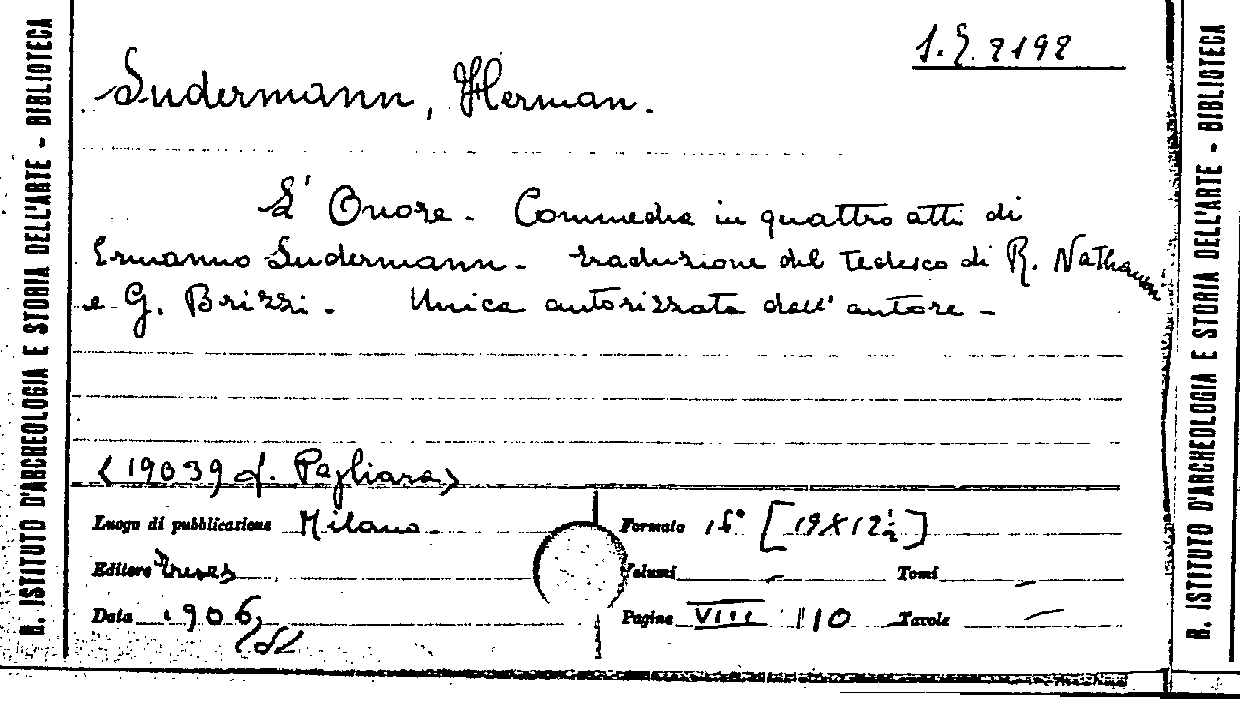 R. ISTITUTO D'ARCHEOLOGIA E STORIA DELL'ARTE - BIBLIOTECA
Sudermann, Herman.
L' Onore. Commedia in quattro atti di
Ermanno Sudermann. traduzione del tedesco di R. Nathanson
e G. Brizzi. Unica autorizzata dall' autore -
<19039 d. Pagliara>
Luogo di pubblicazione Milano.
Formato 16° [19X12½]
Editore Treves
Volumi - Tomi -
Data 1906
Pagine VIII 110 Tavole -
R. ISTITUTO D'ARCHEOLOGIA E STORIA DELL'ARTE - BIBLIOTECA